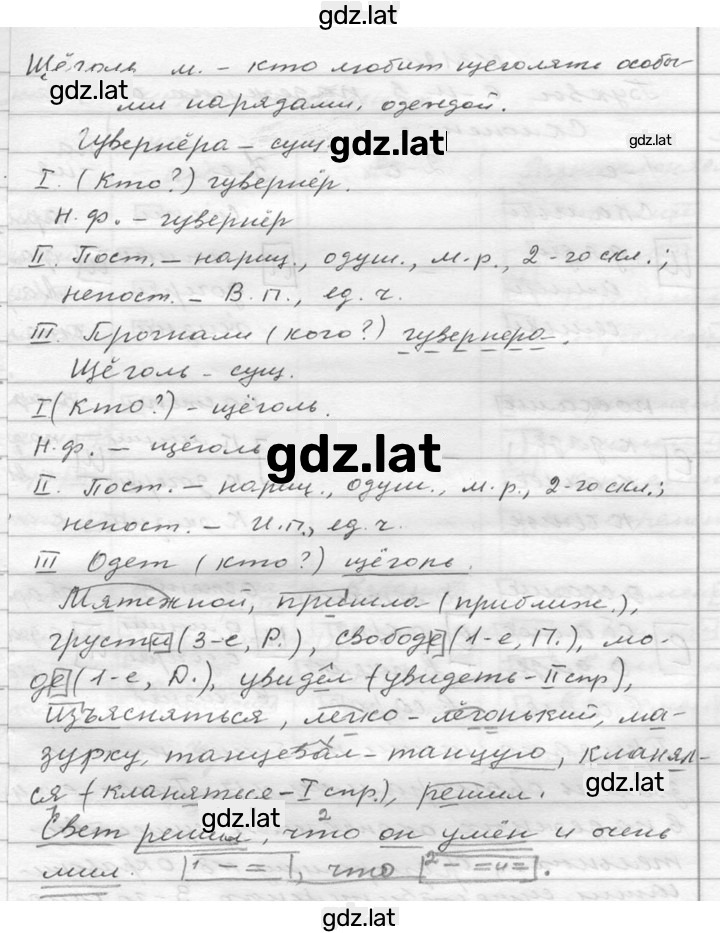 gdz.lat
Щёголь м. – кто любит щеголять особы-
gdz.lat
ми нарядами, одеждой.
Гувернёра – сущ.
gdz.lat
gdz.lat
I. (Кто?) гувернёр.
Н.ф. – гувернёр
II. Пост. – нариц., одуш., м.р., 2-го скл.;
непост. – В.П., ед.ч.
III. Прогнали (кого?) гувернера.
Щёголь – сущ.
I (Кто?) – щёголь.
Н.ф. – щёголь
gdz.lat
II. Пост. – нариц., одуш., м.р., 2-го скл.;
непост. – И.П., ед.ч.
III Одет (кто?) щёголь.
Мятежной, пришла (приближ.),
грусти (3-е, Р.), свободе (1-е, П.), мо-
де (1-е, Д.), увидел (увидеть – II спр),
изъясняться, легко – лёгонький, ма-
зурку, танцевал – танцую, кланял-
ся (кланяться – I спр.), решил.
gdz.lat
Свет решил, что 2 он умён и очень
gdz.lat
мил. [1 – =], что [2 – = и =].
gdz.lat